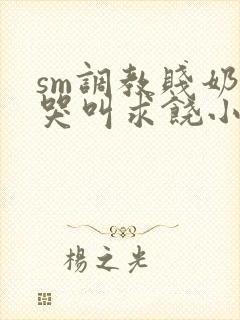 sm調教賤奶
哭叫求饒小
楊之光